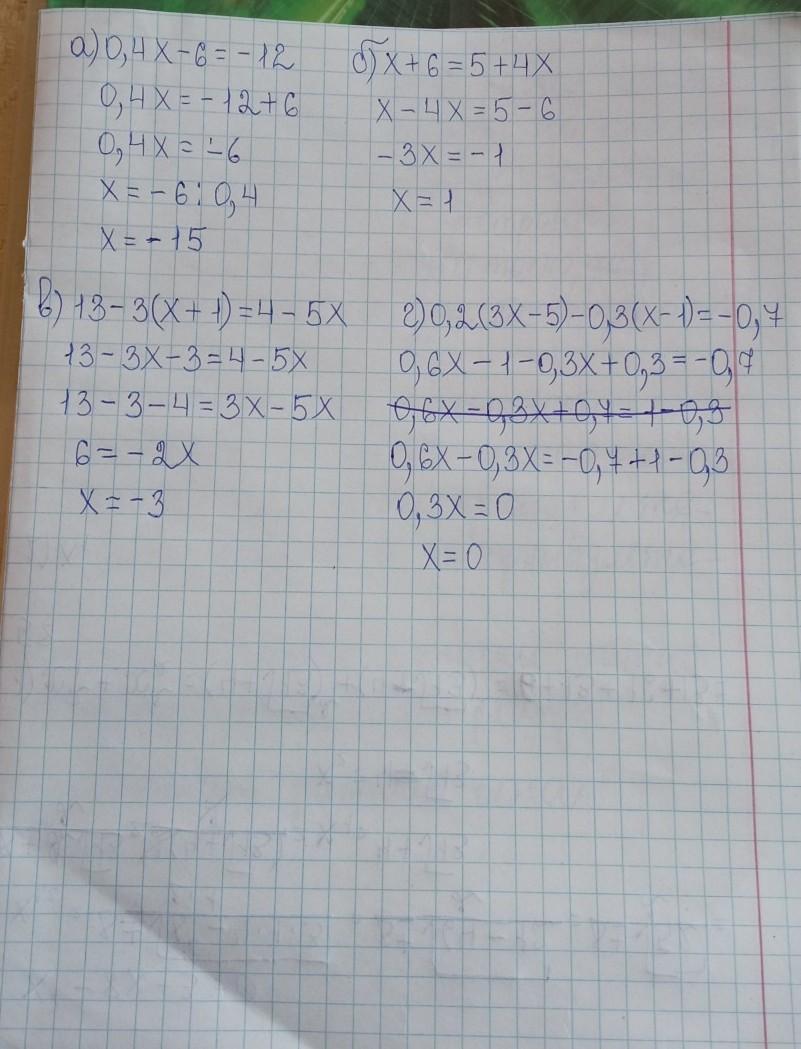 а) 0,4x-6=-12
0,4x=-12+6
0,4x=-6
x=-6:0,4
x=-15
б) x+6=5+4x
x-4x=5-6
-3x=-1
x=1
в) 13-3(x+1)=4-5x
13-3x-3=4-5x
13-3-4=3x-5x
6=-2x
x=-3
г) 0,2(3x-5)-0,3(x-1)=-0,7
0,6x-1-0,3x+0,3=-0,7
0,6x-0,3x+0,7=1-0,3
0,6x-0,3x=-0,7+1-0,3
0,3x=0
x=0